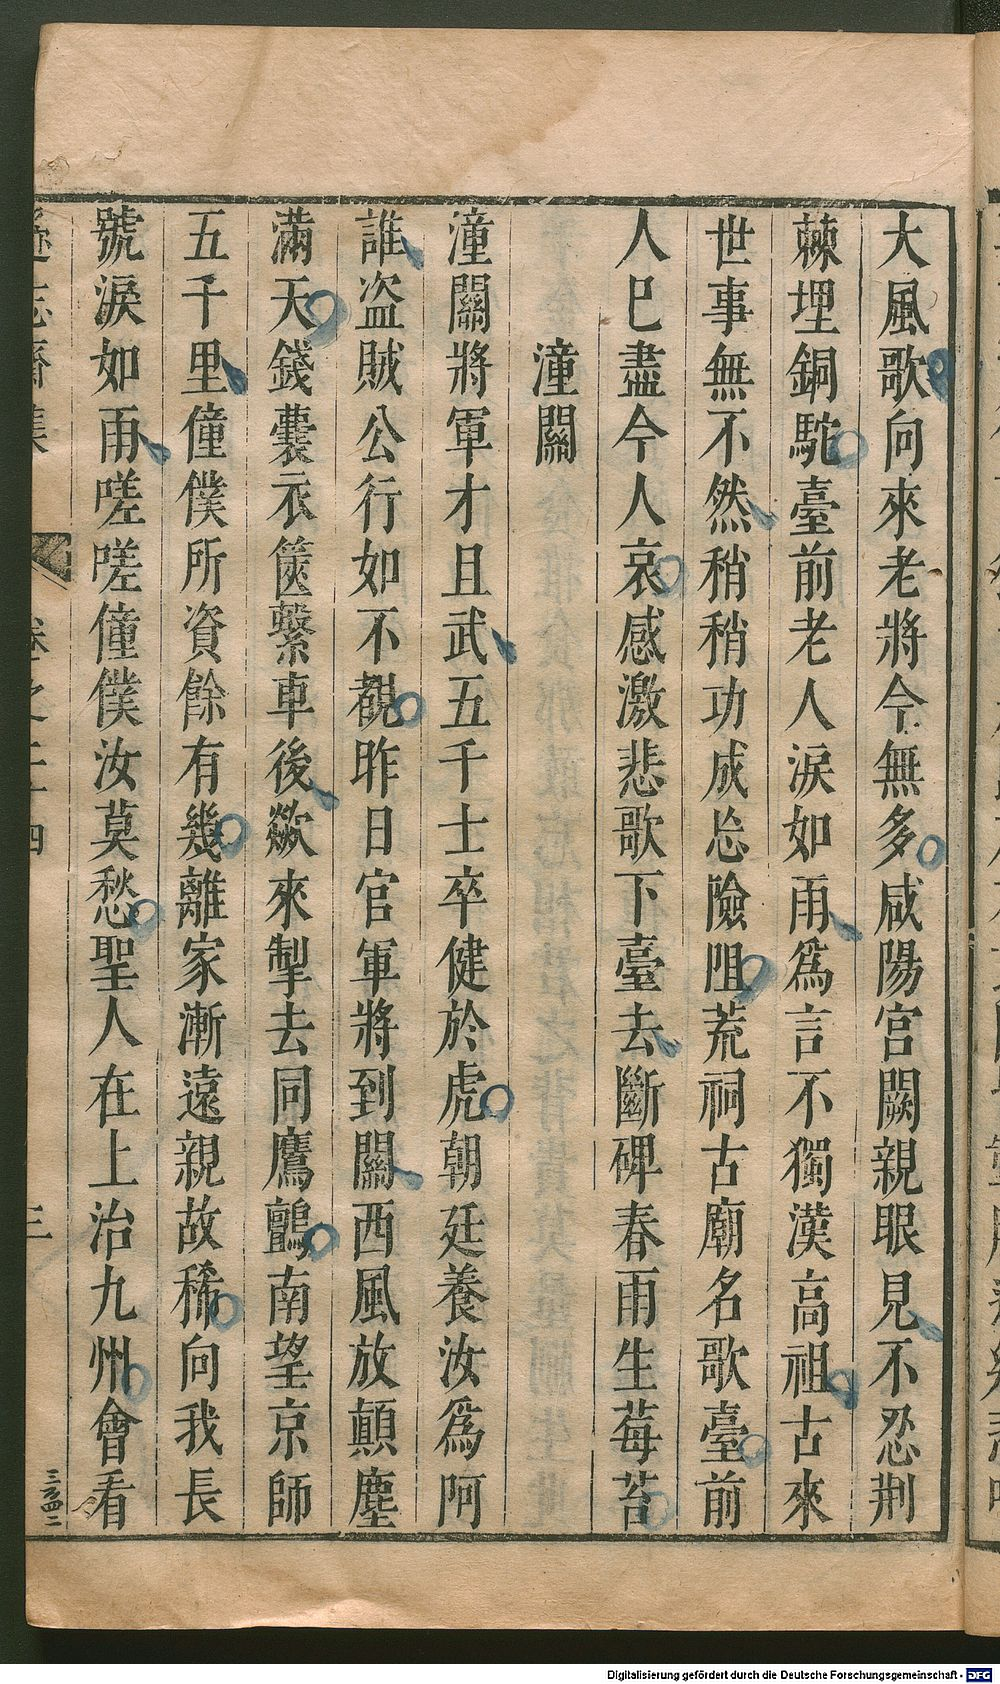 大風歌向來老將今無多咸陽宮闕親眼見不忍荆
棘埋銅駝臺前老人淚如雨爲言不獨漢高祖古來
世事無不然稍稍功成忘險阻荒祠古廟名歌臺前
人已盡今人哀感激悲歌下臺去斷碑春雨生莓苔
潼關
潼關將軍才且武五千士卒健於虎朝廷養汝爲阿
誰盗賊公行如不覩昨日官軍將到關西風放顛塵
滿天錢囊衣篋繫車後歘來掣去同鷹鸇南望京師
五千里僮僕所資餘有幾離家漸遠親故稀向我長
號淚如雨嗟嗟僮僕汝莫愁聖人在上治九州會看
遜志齋集
卷之二十四
三
三百四二
Digitalisierung gefördert durch die Deutsche Forschungsgemeinschaft - DFG